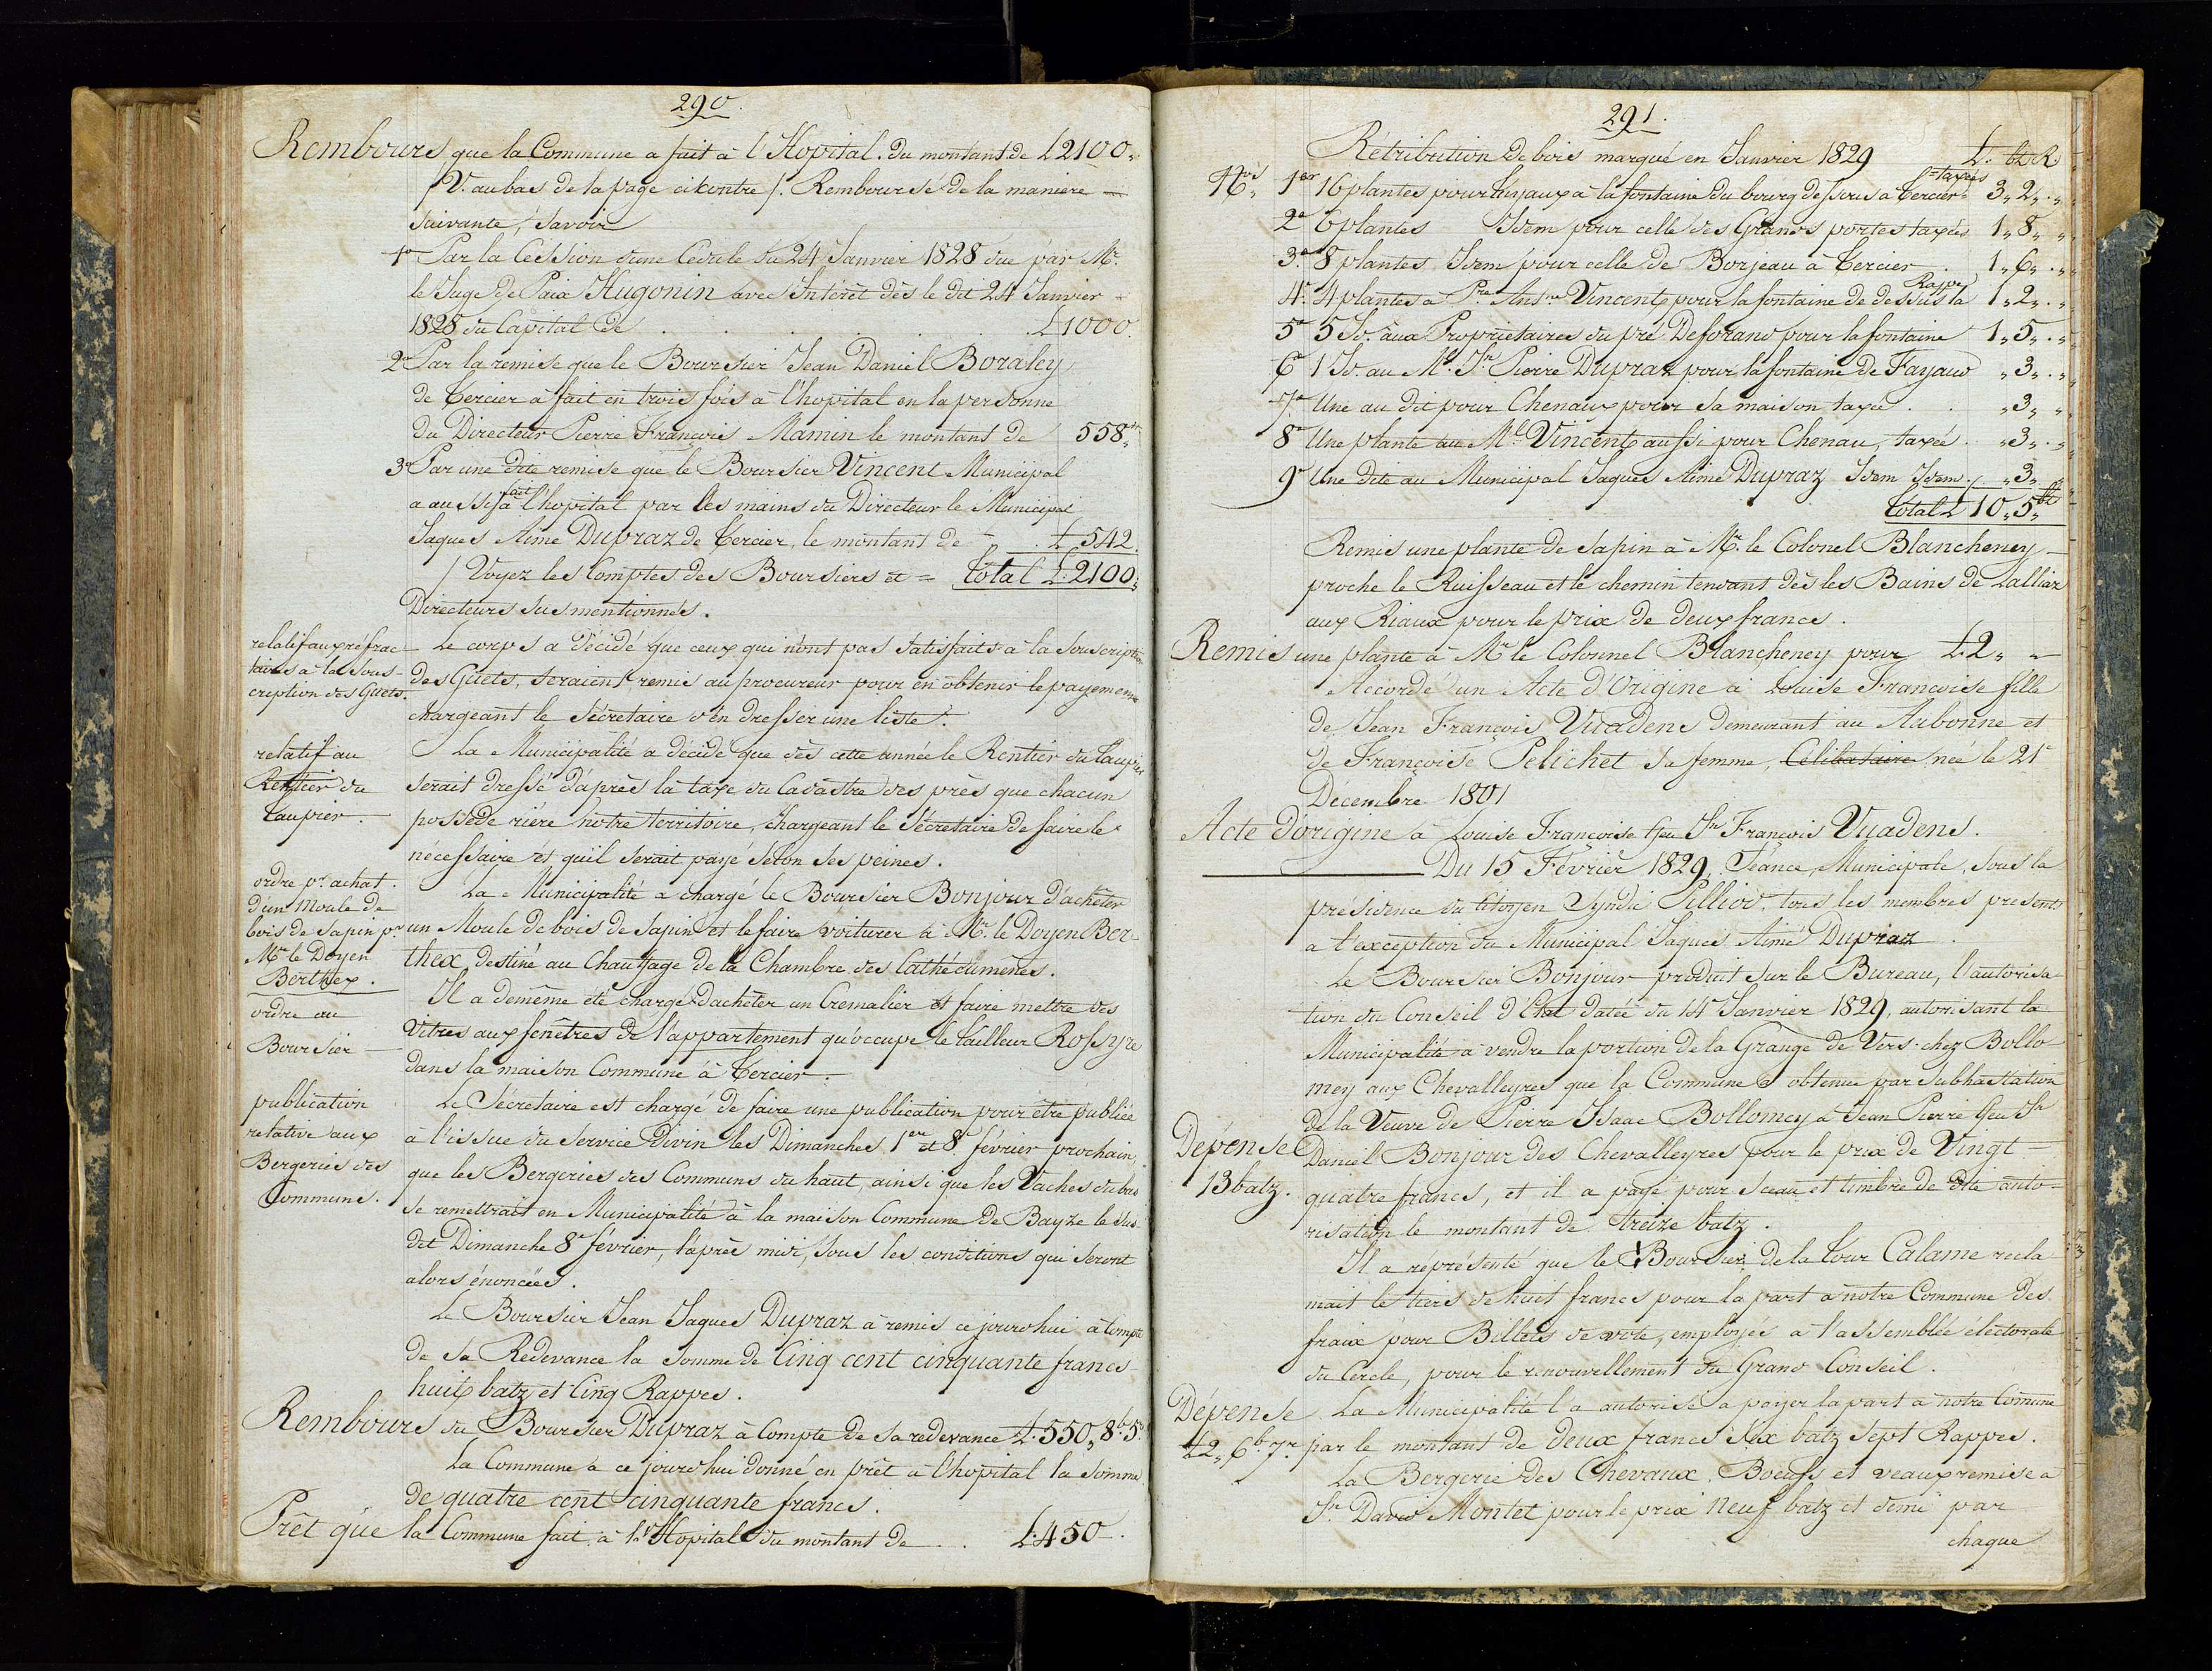 290.
Rembours que la Commune a fait à l'Hopital. du montant de L 2100 „
/ V. au bas de la page ci contre /. Remboursé de la maniere —
suivante, savoir
1o Par la Cession d'une Cedule du 24 Janvier 1828 due par Mr.
le Juge de Paix Hugonin avec Intérêt dès le dit 24 Janvier
1828 du Capital de . . . . . L 1000.
2o Par la remise que le Boursier Jean Daniel Boraley
de Tercier a fait en trois fois à l'hopital en la personne
du Directeur Pierre François Mamin le montant de 558 „
3o Par une dite remise que le Boursier Vincent Municipal
a aussi fait à l'hopital par les mains du Directeur le Municipal
Jaques Aimé Dupraz de Tercier, le montant de . L 542.
/ Voyez les Comptes des Boursiers et = Total L. 2100 „
Directeurs sus mentionnés.
relatif aux réfrac-
taires à la sous-
cription des Guets.
Le corps a décidé que ceux qui n'ont pas satisfaits à la souscription
des Guets, seraient remis au procureur pour en obtenir le payement
chargeant le sécretaire d'en dresser une liste.
relatif au
Rentier du
Taupier.
La Municipalité a décidé que dès cette année le Rentier du Taupier
serait dressé d'après la taxe du Cadastre des près que chacun
possède rière notre territoire, chargeant le Sécretaire de faire le
nécessaire et qu'il serait payé selon ses peines.
ordre pr. achat.
d'un Moule de
bois de sapin pr.
Mr. le Doyen
Berthex.
La Municipalité a chargé le Boursier Bonjour d'achêter
un Moule de bois de Sapin et le faire voiturer à Mr. le Doyen Ber-
thex, destiné au Chauffage de la Chambre des Cathécumènes.
ordre au
Boursier —
Il a demême été chargé d'achêter un Cremalier et faire mettre des
vitres aux fenêtres de l'appartement qu'occupe le tailleur Rossyre
dans la maison Commune à Tercier.
publication
relative aux
Bergeries des
Communs.
Le Sécretaire est chargé de faire une publication pour être publiée
à l'issue du service divin les Dimanches 1er et 8e février prochain,
que les Bergeries des Communs du haut, ainsi que les Vaches du bas
se remettrait en Municipalité à la maison Commune de Bayze le sus
dit Dimanche 8e février, l'après midi, sous les conditions qui seront
alors énoncées.
Le Boursier Jean Jaques Dupraz a remis ce jourd'hui à Compte
de sa Redevance la somme de Cinq cent cinquante francs-
huit batz et Cinq Rappes.
Rembours du Boursier Dupraz à Compte de sa redevance L. 550 „ 8b 5r.
La Commune a ce jourd'hui donné en prêt à l'hopital la somme
de quatre cent cinquante francs.
Prêt que la Commune fait à l'Hopital du montant de . . L. 450.
291.
Rétribution de bois marqué en Janvier 1829 L. bz R.
Nos 1er 16 plantes pour tuyaux à la fontaine du bourg dessous à Tercier taxées 3 „ 2 „ . „
2e 6 plantes Idem pour celle des Grands portes taxées 1 „ 8 „ „
3e 8 plantes Idem pour celle de Borjeau à Tercier . 1 „ 6 „ . „
4e. 4 plantes à Pre. Anne Vincent pour la fontaine de dessus la 1 „ 2 „ . „
5e 5 Id. aux Propriétaires du pré Deforand pour la fontaine 1 „ 5 „ . „
6e 1 Id. au Ml. Jn Pierre Dupraz pour la fontaine de Fayaud „ 3 „ . „
7e. Une au dit pour Chenaux pour sa maison taxée . . „ 3 „ „
8e Une plante au Ml. Vincent aussi pour Chenau, taxée . „ 3 „ . „
9e Une dite au Municipal Jaques Aimé Dupraz Idem Idem . „ 3 „ „
Total L 10 „ 5 bz
Remis une plante de sapin à Mr. le Colonel Blancheney —
proche le Ruisseau et le chemin tendant dès les Bains de Lalliaz
aux Riaux pour le prix de deux francs.
Remis une plante à Mr le Colonnel Blancheney pour L. 2 „ „ —
Accordé un Acte d'Origine à Louise Francoise fille
de Jean François Vuadens demeurant au Aubonne et
de Françoise Pelichet sa femme, Célibataire née le 21e
Décembre 1801
Acte d'origine à Louise Françoise ffeu Jn François Vuadens.
Du 15 Février 1829, Séance Municipale, sous la
présidence du Citoyen Syndic Pilliod, tous les membres presents
a l'exception du Municipal Jaques Aimé Dupraz.
Le Boursier Bonjour produit sur le Bureau, l'autorisa-
tion du Conseil d'Etat datée du 14 Janvier 1829, autorisant la
Municipalité à vendre la portion de la Grange de Vers-chez Bollo-
mey aux Chevalleyres que la Commune a obtenue par subhastation
de la Veuve de Pierre Isaac Bollomey à Jean Pierre ffeu Jn
Dépense
13 batz.
Daniel Bonjour des Chevalleyres pour le prix de Vingt-
quatre francs, et il a payé pour sceau et timbre de dite auto-
risation le montant de treize batz.
Il a représenté que le Boursier de la Tour Calame recla-
mait le tiers de huit francs pour la part à notre Commune des
fraix pour Billets de vote, employés à l'assemblée électorale
du Cercle, pour le renouvellement du Grand Conseil.
Depense
L 2 „ 6b 7r
La Municipalité l'a autorisé a payer la part à notre Comune
par le montant de deux francs six batz sept Rappes.
La Bergerie des Chevaux, Boeufs et veaux remise à
Jn. David Montet pour le prix neuf batz et demi par
chaque